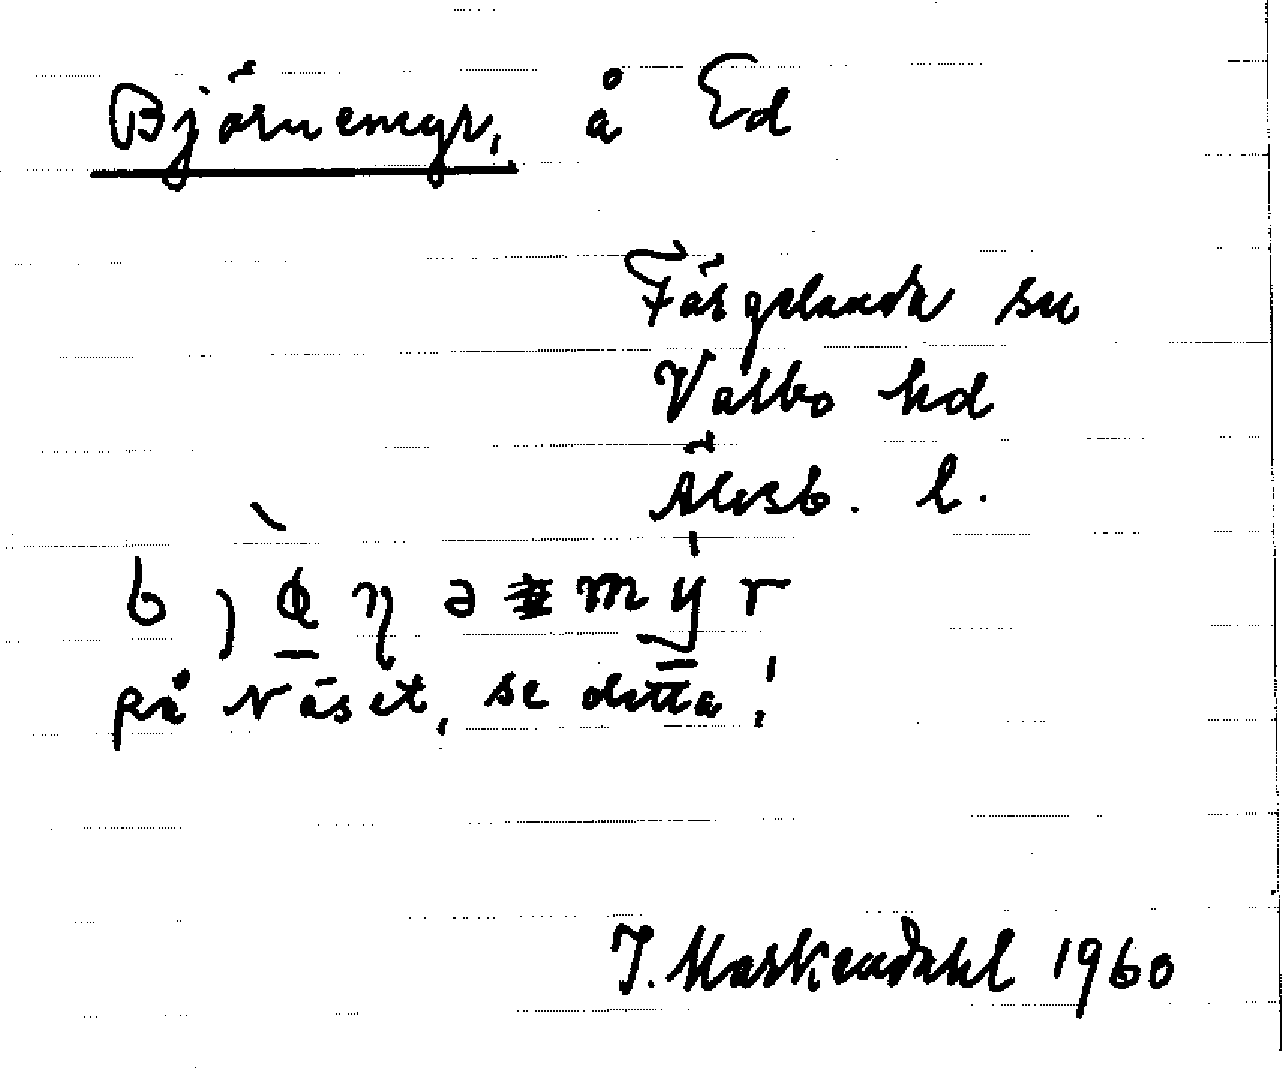 Björnemyr, å Ed
Färgelanda sn
Valbo hd
Älvsb. l.
på Näset, se detta!
I. Markendahl 1960